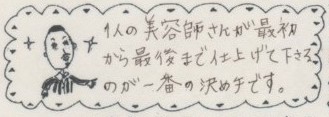 1人の美容師さんが最初
から最後まで仕上げて下さる
のが一番の決め手です。